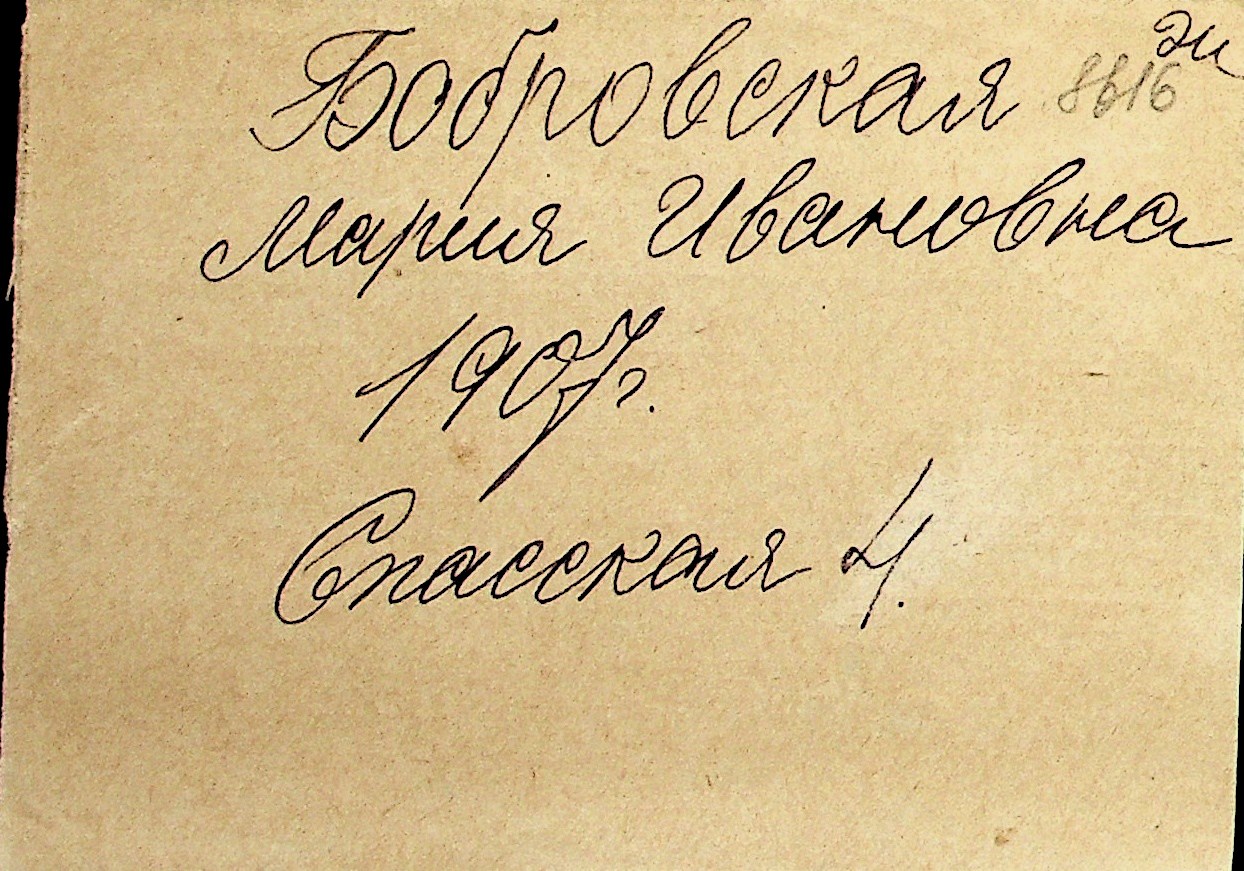 Бобровская
Мария Ивановна
1907г.
Спасская 4.